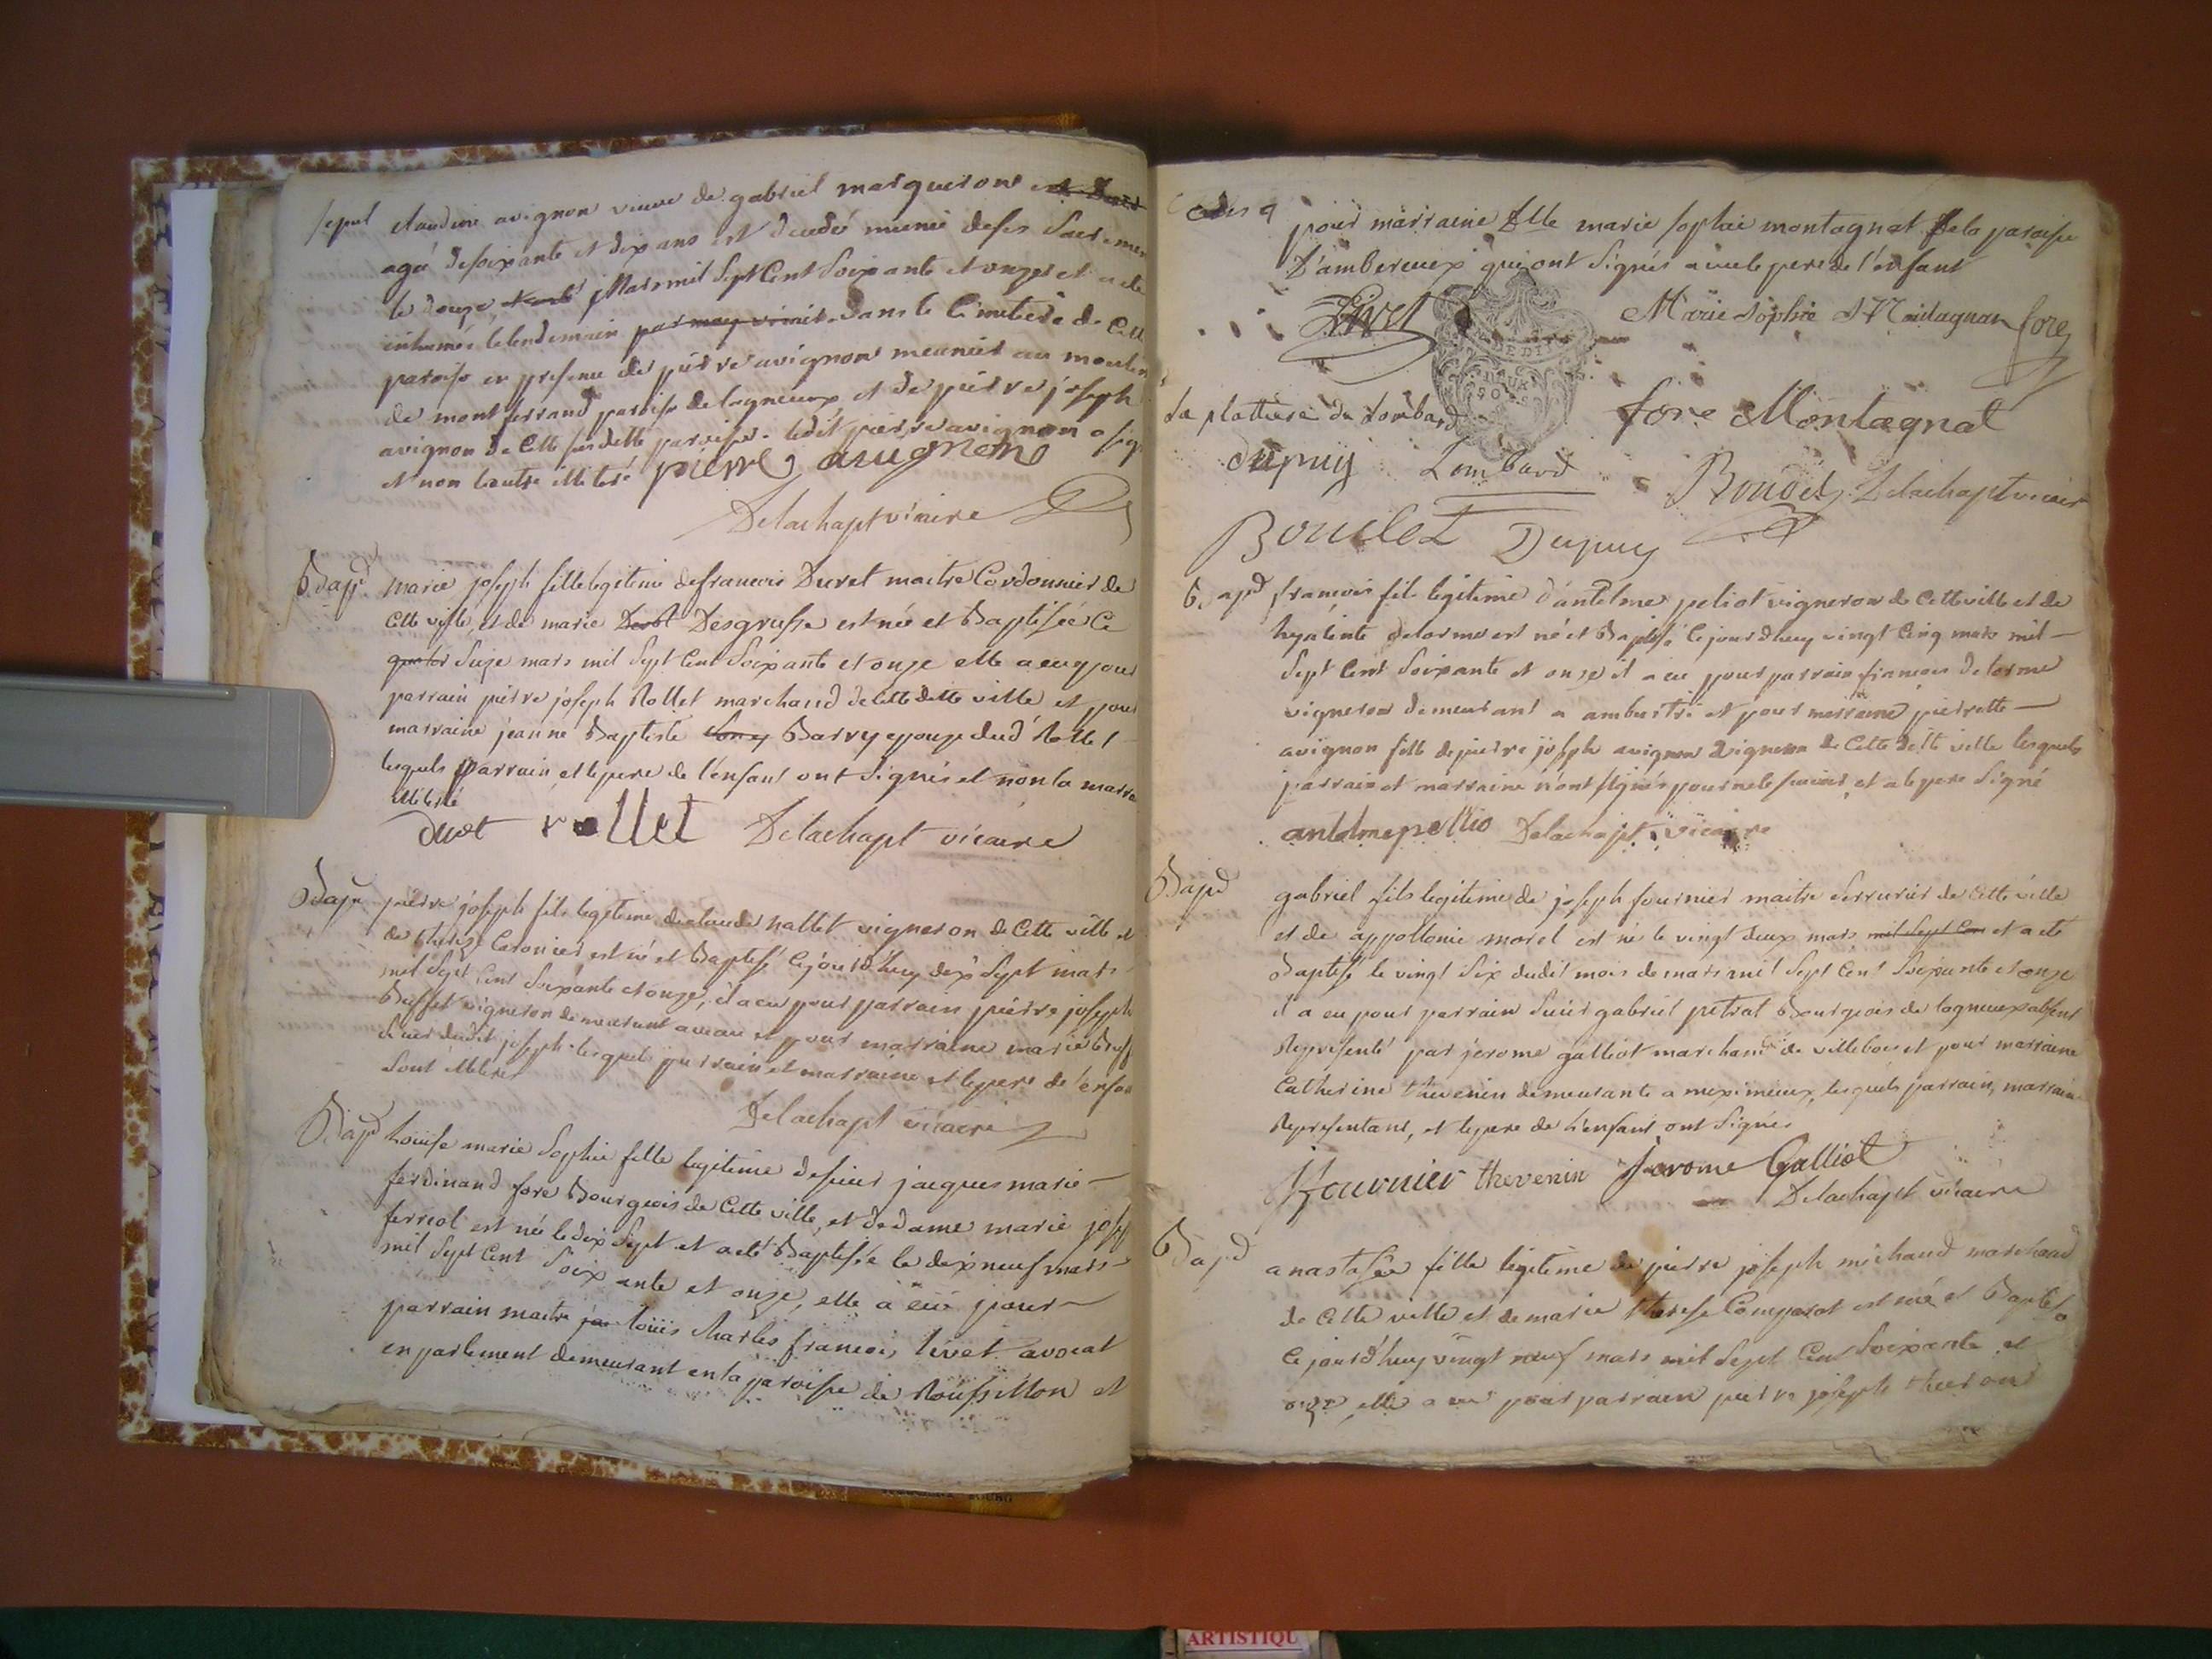 sepul claudine avignon veuve de gabriel marqueron
agé de soixante et dix ans est decedé munie de ses Sacremen
le douze Mars mil Sept Cent Soixante et onze et a ete
inhumée le lendemain par moy vicaire dans le Cimetiere de Cette
paroisse en presence de pierre avignon meunier au moulin
de montferrand paroisse de lagneux et de pierre joseph
avignon de Cette susditte paroisse. ledit pierre avignon a sig
et non l'autre illiteré pierre avignon
Delachapt vicaire
Bap. marie joseph fille legitime de francois Duret maitre Cordonnier de
Cette ville, et de marie Desgrusse est née et Baptisée Ce
Seize mars mil Sept Cent Soixante et onze elle a eu pour
parrain pierre joseph Rollet marchand de cette ditte ville et pour
marraine jeanne Baptiste Barry epouze dud' Rollet
lesquels parrain et le pere de l'enfant ont Signés et non la marra
illiterée
duret rollet Delachapt vicaire
Bap pierre joseph fils legitime de claude nallet vigneron de Cette ville et
de therese est né et Baptisé Cejourd'huy dix Sept mars
mil Sept Cent Soixante et onze, il a eu pour parrain pierre joseph
Buffet vigneron demeurant a vaux et pour marraine marie Buff
Soeur dudit joseph lesquels parrain et marraine et le pere de l'enfan
Sont illiterés
Delachapt vicaire
Bapd Loüise marie Sophie fille legitime de sieur jacques marie
ferdinand fore Bourgeois de Cette ville, et de dame marie josep
ferreol est née le dix Sept et a eté Baptisée le dix neuf mars
mil Sept Cent Soixante et onze, elle a eu pour
parrain maitre loüis Charles francois livet avocat
en parlement demeurant en la paroisse de Roussillon et
pour marraine Dlle marie sophie montagnat de la paroisse
D'ambereux qui ont Signés avec le pere de l'enfant
Livet Marie Sophie Montagnan fore
La plattiere du Lombard fore Montagnat
Dupuy Lombard Boudet Delachapt vicair
Boudet Dupuy
Bapd francois fils legitime d'antelme peliot vigneron de Cette ville et de
hyacinte delorme est né et Baptisé Cejourdhuy vingt Cinq mars mil
Sept Cent Soixante et onze il a eu pour parrain francois delorme
vigneron demeurant a ambutrix et pour marraine pierrette
avignon fille de pierre joseph avignon vigneron de Cette ditte ville lesquels
parrain et marraine n'ont signés pour ne le scavoir et a le pere Signé
antelme pellio Delachapt vicaire
Bapd gabriel fils legitime de joseph fournier maitre Serrurier de Cette ville
et de appollonie morel est né le vingt deux mars mil Sept Cen et a eté
Baptisé le vingt Six dudit mois de mars mil Sept Cent Soixante et onze
il a eu pour parrain Sieur gabriel petrat Bourgeois de lagneux absent
Representé par jerome galliot marchand de villebois et pour marraine
Catherine thevenin demeurante a meximieux, lesquels parrain, marraine
Representant, et le pere de l'enfant ont Signés
fournier thevenin Jerome Galliot
Delachapt vicaire
Bapd anastasie fille legitime de pierre joseph michaud marchand
de Cette ville et de marie therese Comparot est née et Baptisé
Cejourd'huy vingt neuf mars mil Sept Cent Soixante et
onze elle a eu pour parrain pierre joseph
ARTISTIQU